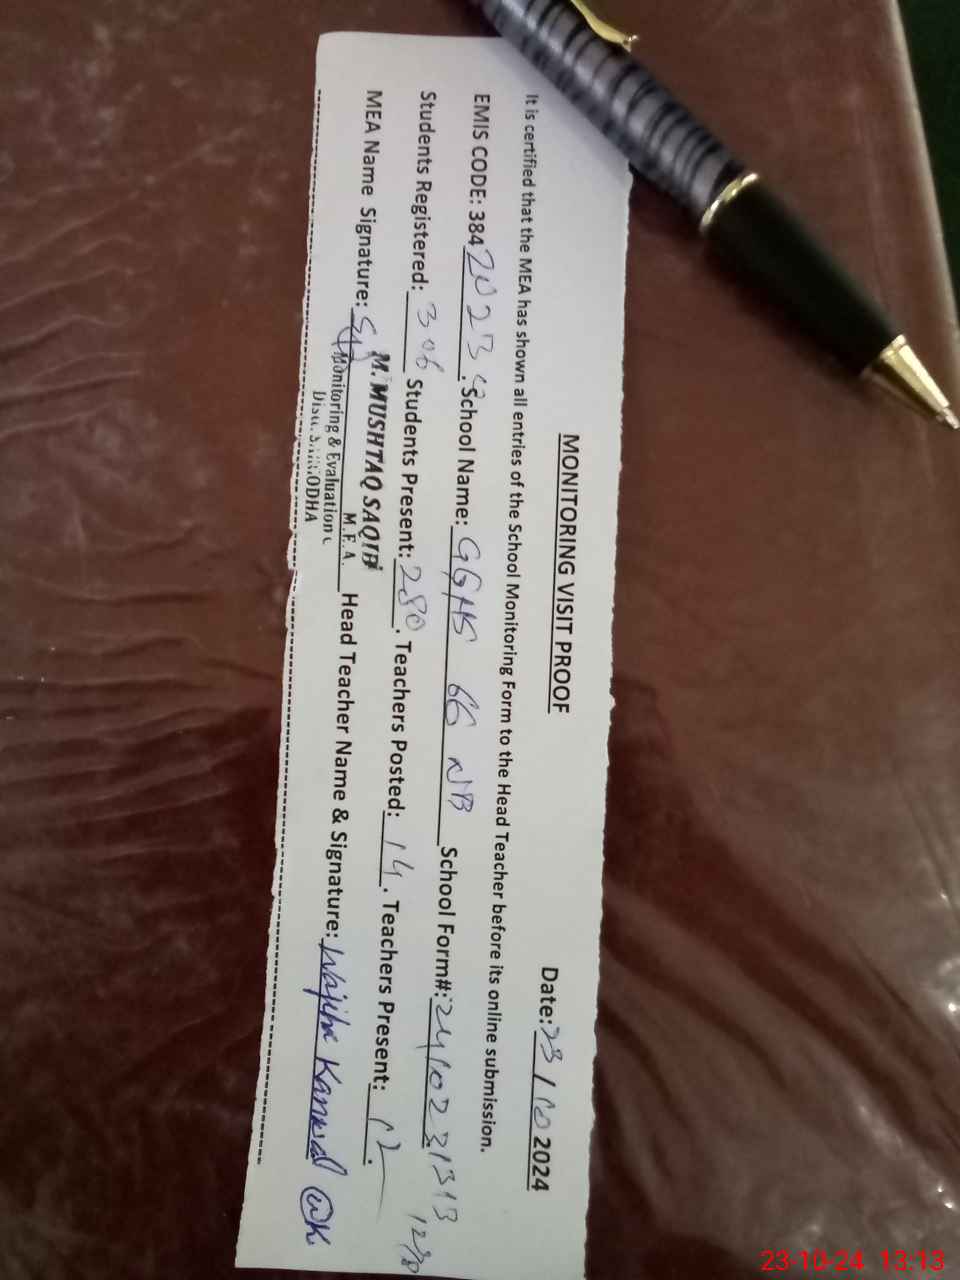 MONITORING VISIT PROOF
Date: 23/10 2024
It is certified that the MEA has shown all entries of the School Monitoring Form to the Head Teacher before its online submission.
EMIS CODE: 384 2023 . School Name: GGHS 66 NB School Form#: 241023 1313
Students Registered: 306 Students Present: 280. Teachers Posted: 14. Teachers Present: 12.
M. MUSHTAQ SAQIB
M.E.A.
MEA Name Signature: Head Teacher Name & Signature: Wajiha Kanwal
Monitoring & Evaluation
23-10-24 13:13